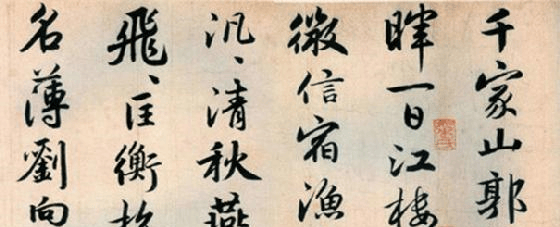 千家山郭
暉一日江樓
微信宿漁
汎〻清秋燕
飛〻匡衡抗
名薄劉向